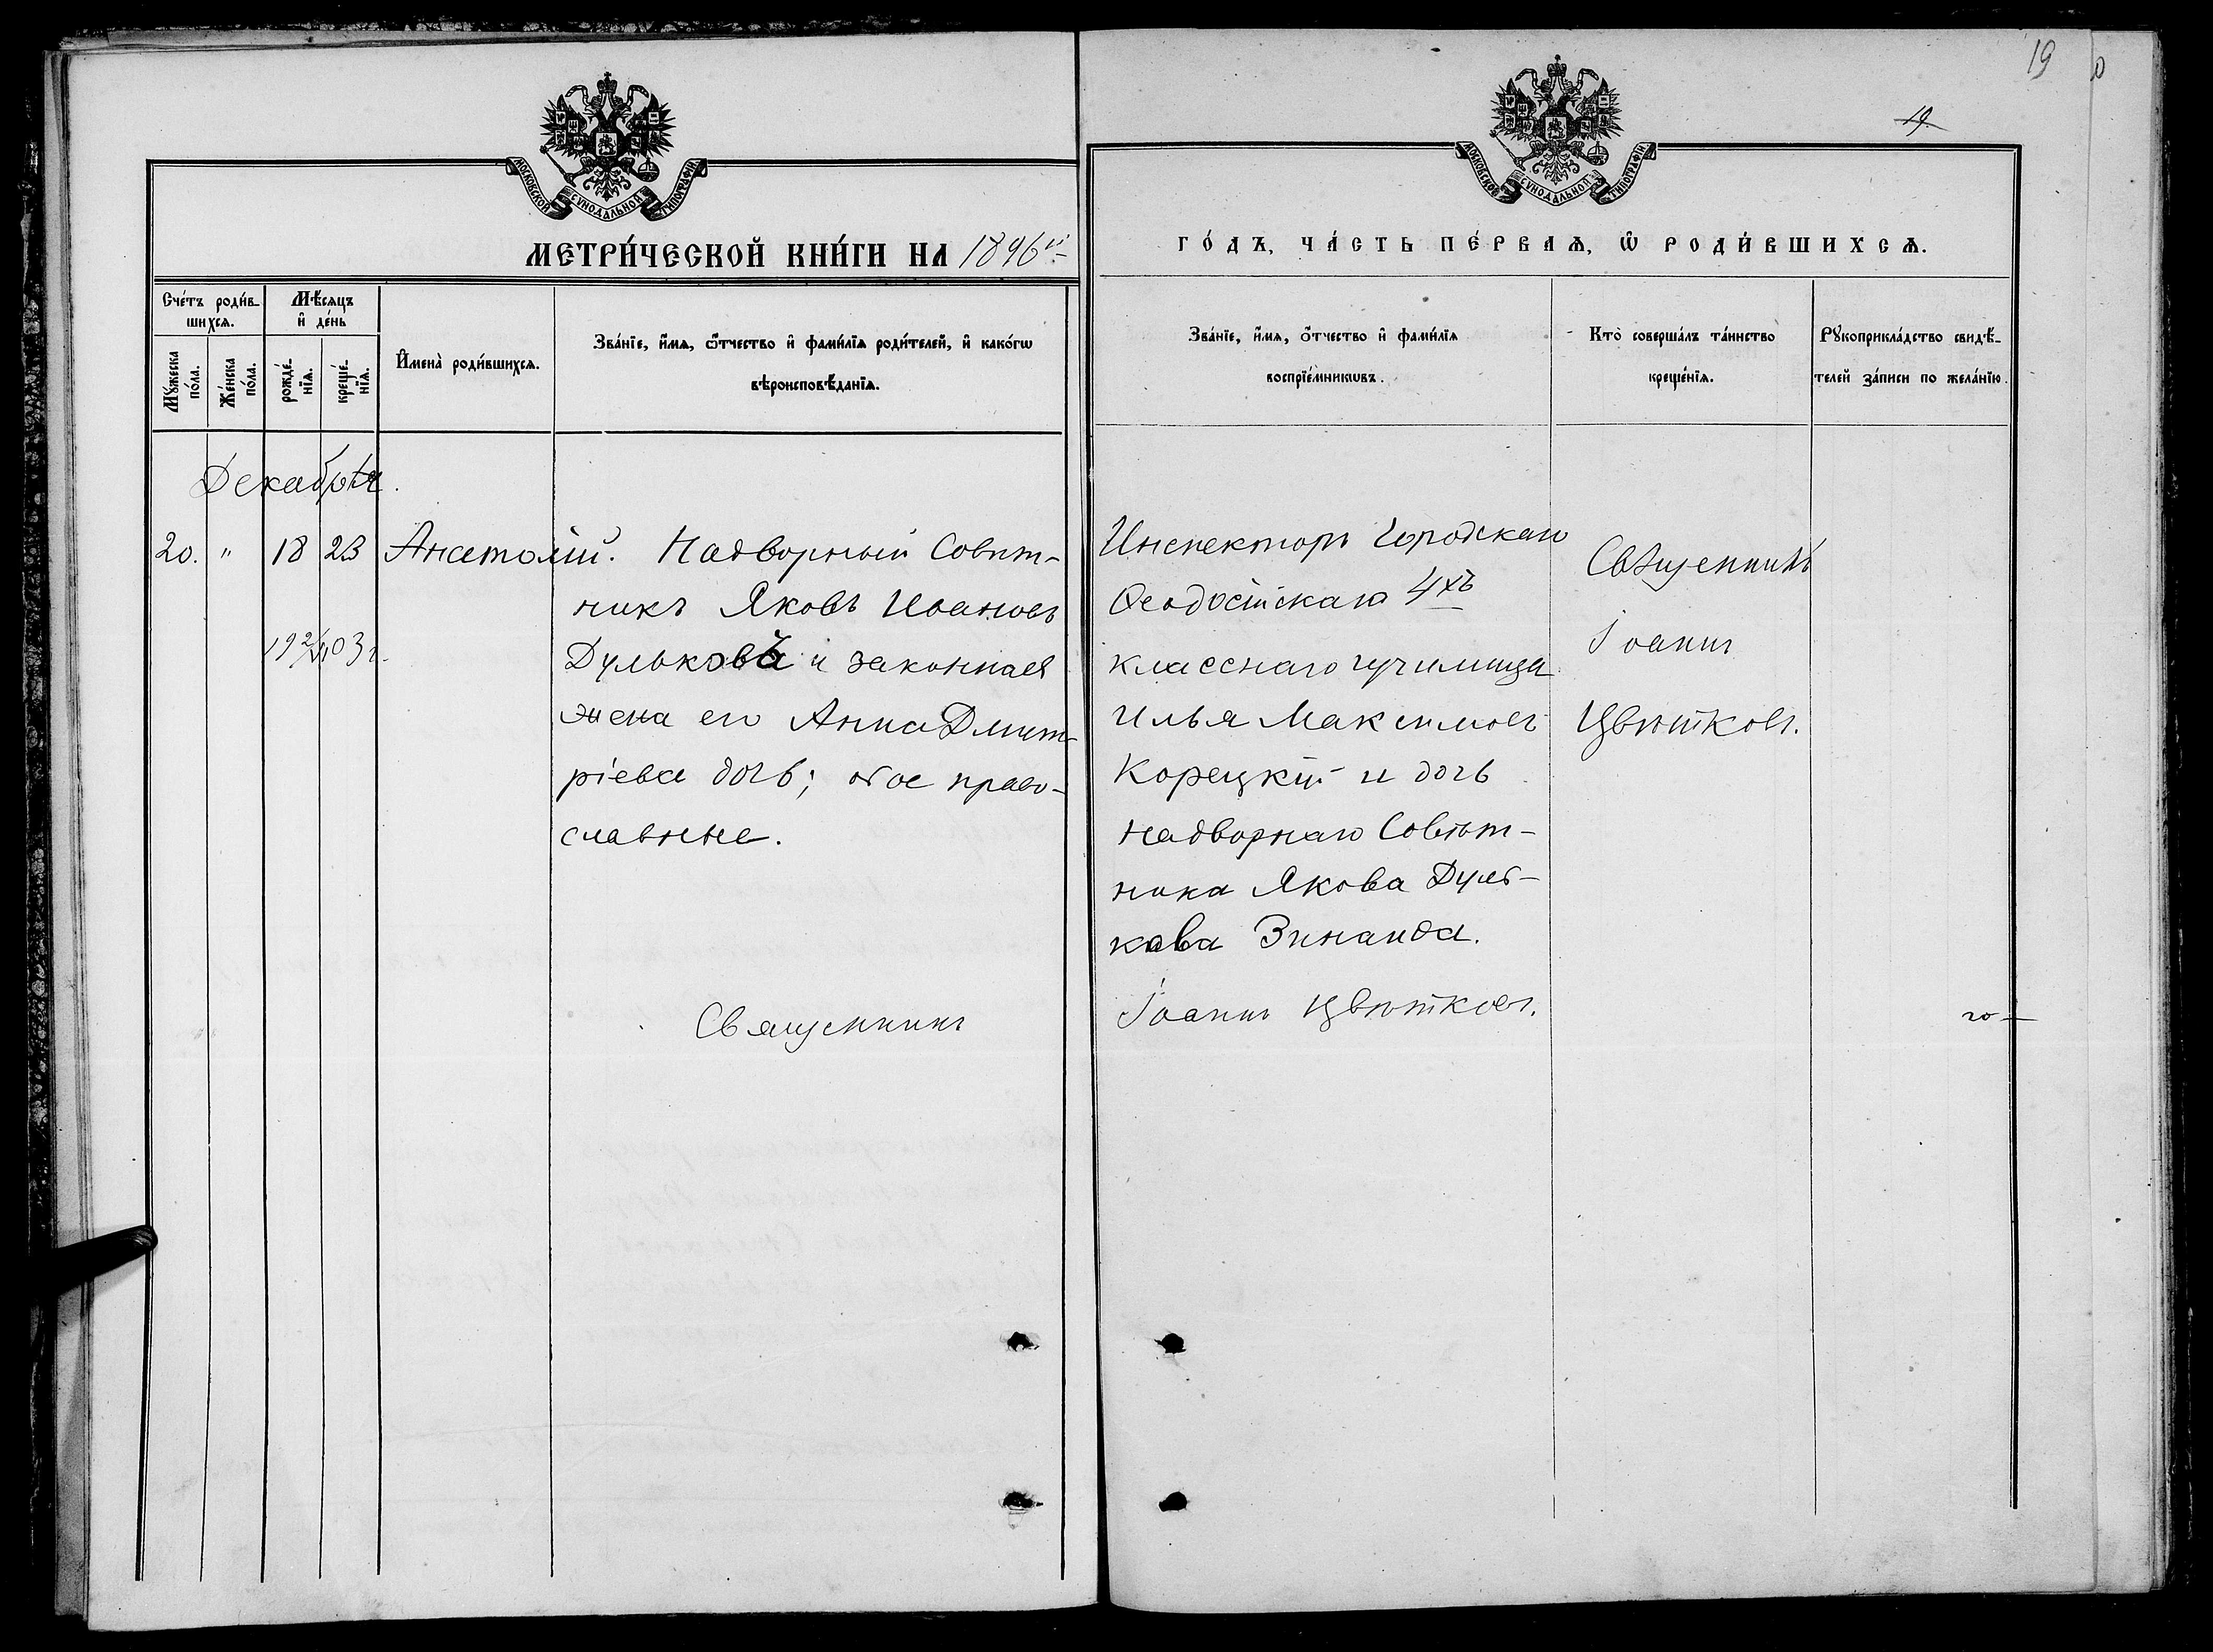 19
19.
МОСКОВСКОЙ СѴНОДАЛЬНОЙ ТИПОГРАФІИ
МОСКОВСКОЙ СѴНОДАЛЬНОЙ ТИПОГРАФІИ
МЕТРИ́ЧЕСКОЙ КНИ́ГИ НА 1896й
ГО́ДЪ, ЧА́СТЬ ПЕ́РВАѦ, Ѡ҆ РОДИ́ВШИХСѦ.
Сче́тъ роди́в-
шихсѧ.
Мꙋ́жеска
по́ла.
Же́нска
по́ла.
Мѣ́сѧцъ
и҆ де́нь
рожде́-
нїѧ.
креще́-
нїѧ.
И҆мена̀ роди́вшихсѧ.
Зва́нїе, и҆́мѧ, ѻ҆́тчество и҆ фами́лїѧ роди́телей, и҆ како́гѡ
вѣроисповѣ́данїѧ.
Зва́нїе, и҆́мѧ, ѻ҆́тчество и҆ фами́лїѧ
воспрїе́мникѡвъ.
Кто̀ соверша́лъ та́инство
креще́нїѧ.
Рꙋкоприкла́дство свидѣ́-
телей за́писи по жела́нїю.
Декабрь.
20. " 18 23 Анатолій.
Надворный Совѣт-
никъ Яковъ Ивановъ
Дульковъ и законная
жена его Анна Дмит-
ріева дочь; обое право-
славные.
Инспекторъ Городскаго
Ѳеодосійскаго 4хъ
класснаго училища
Илья Максимовъ
Корецкій и дочь
Надворнаго Совѣт-
ника Якова Дуль-
кова Зинаида.
Священникъ
Іоаннъ
Цвѣтковъ.
Священникъ Іоаннъ Цвѣтковъ.
го